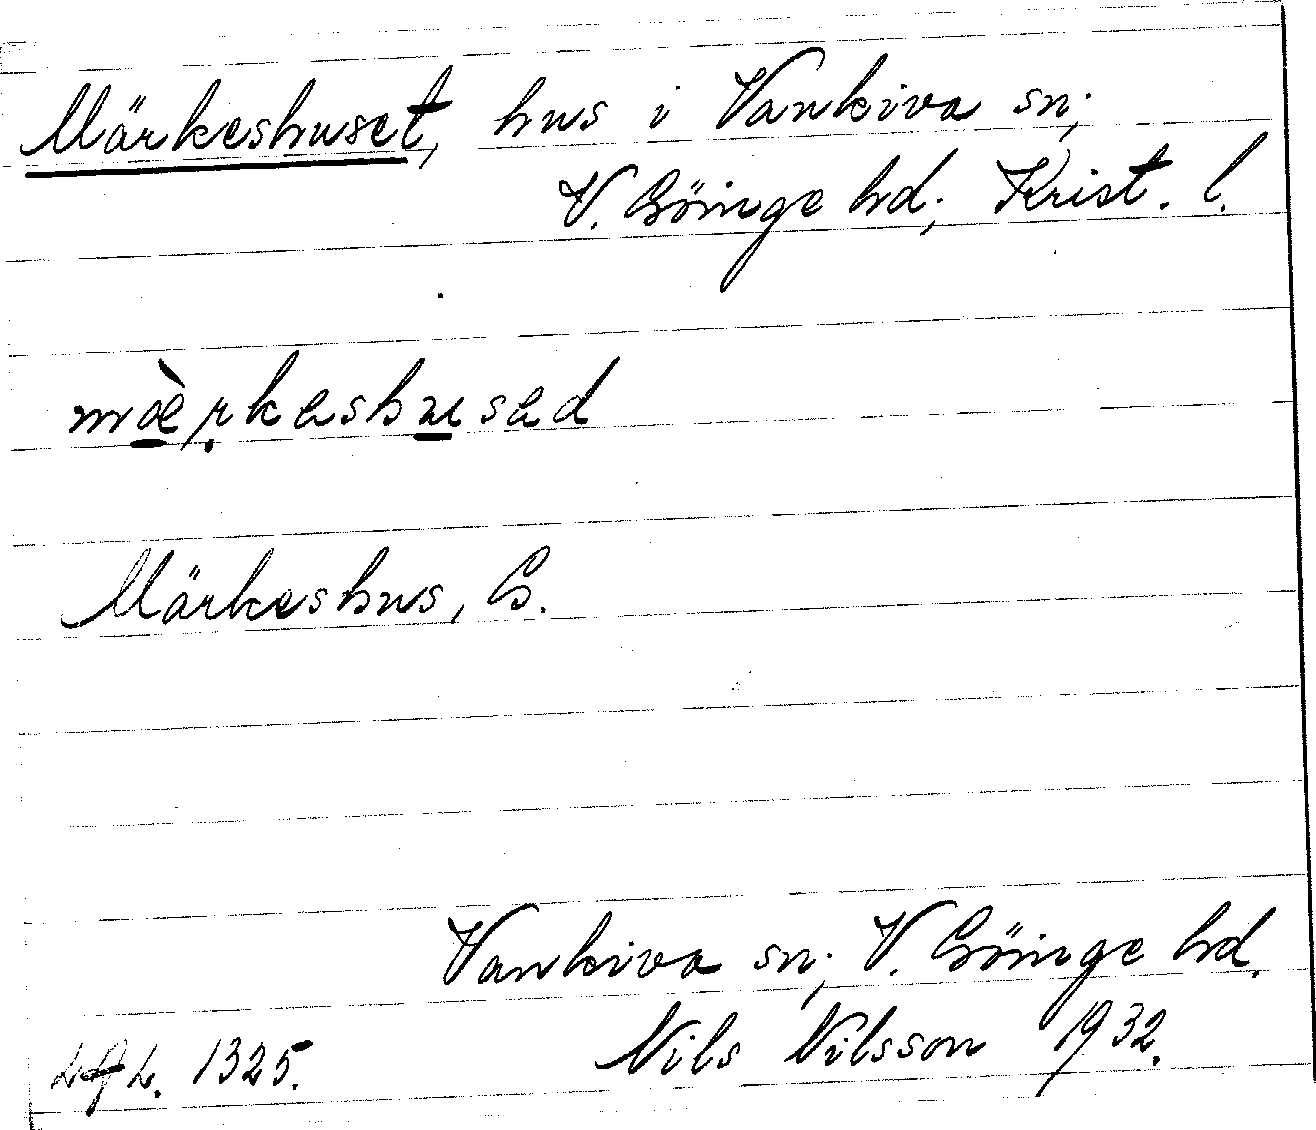 Märkeshuset, hus i Vankiva sn;
V. Göinge hd; Krist. l.
mæ̀ṛkeshused
Märkeshus, G.
Vankiva sn; V. Göinge hd.
1325. Nils Nilsson 1932.